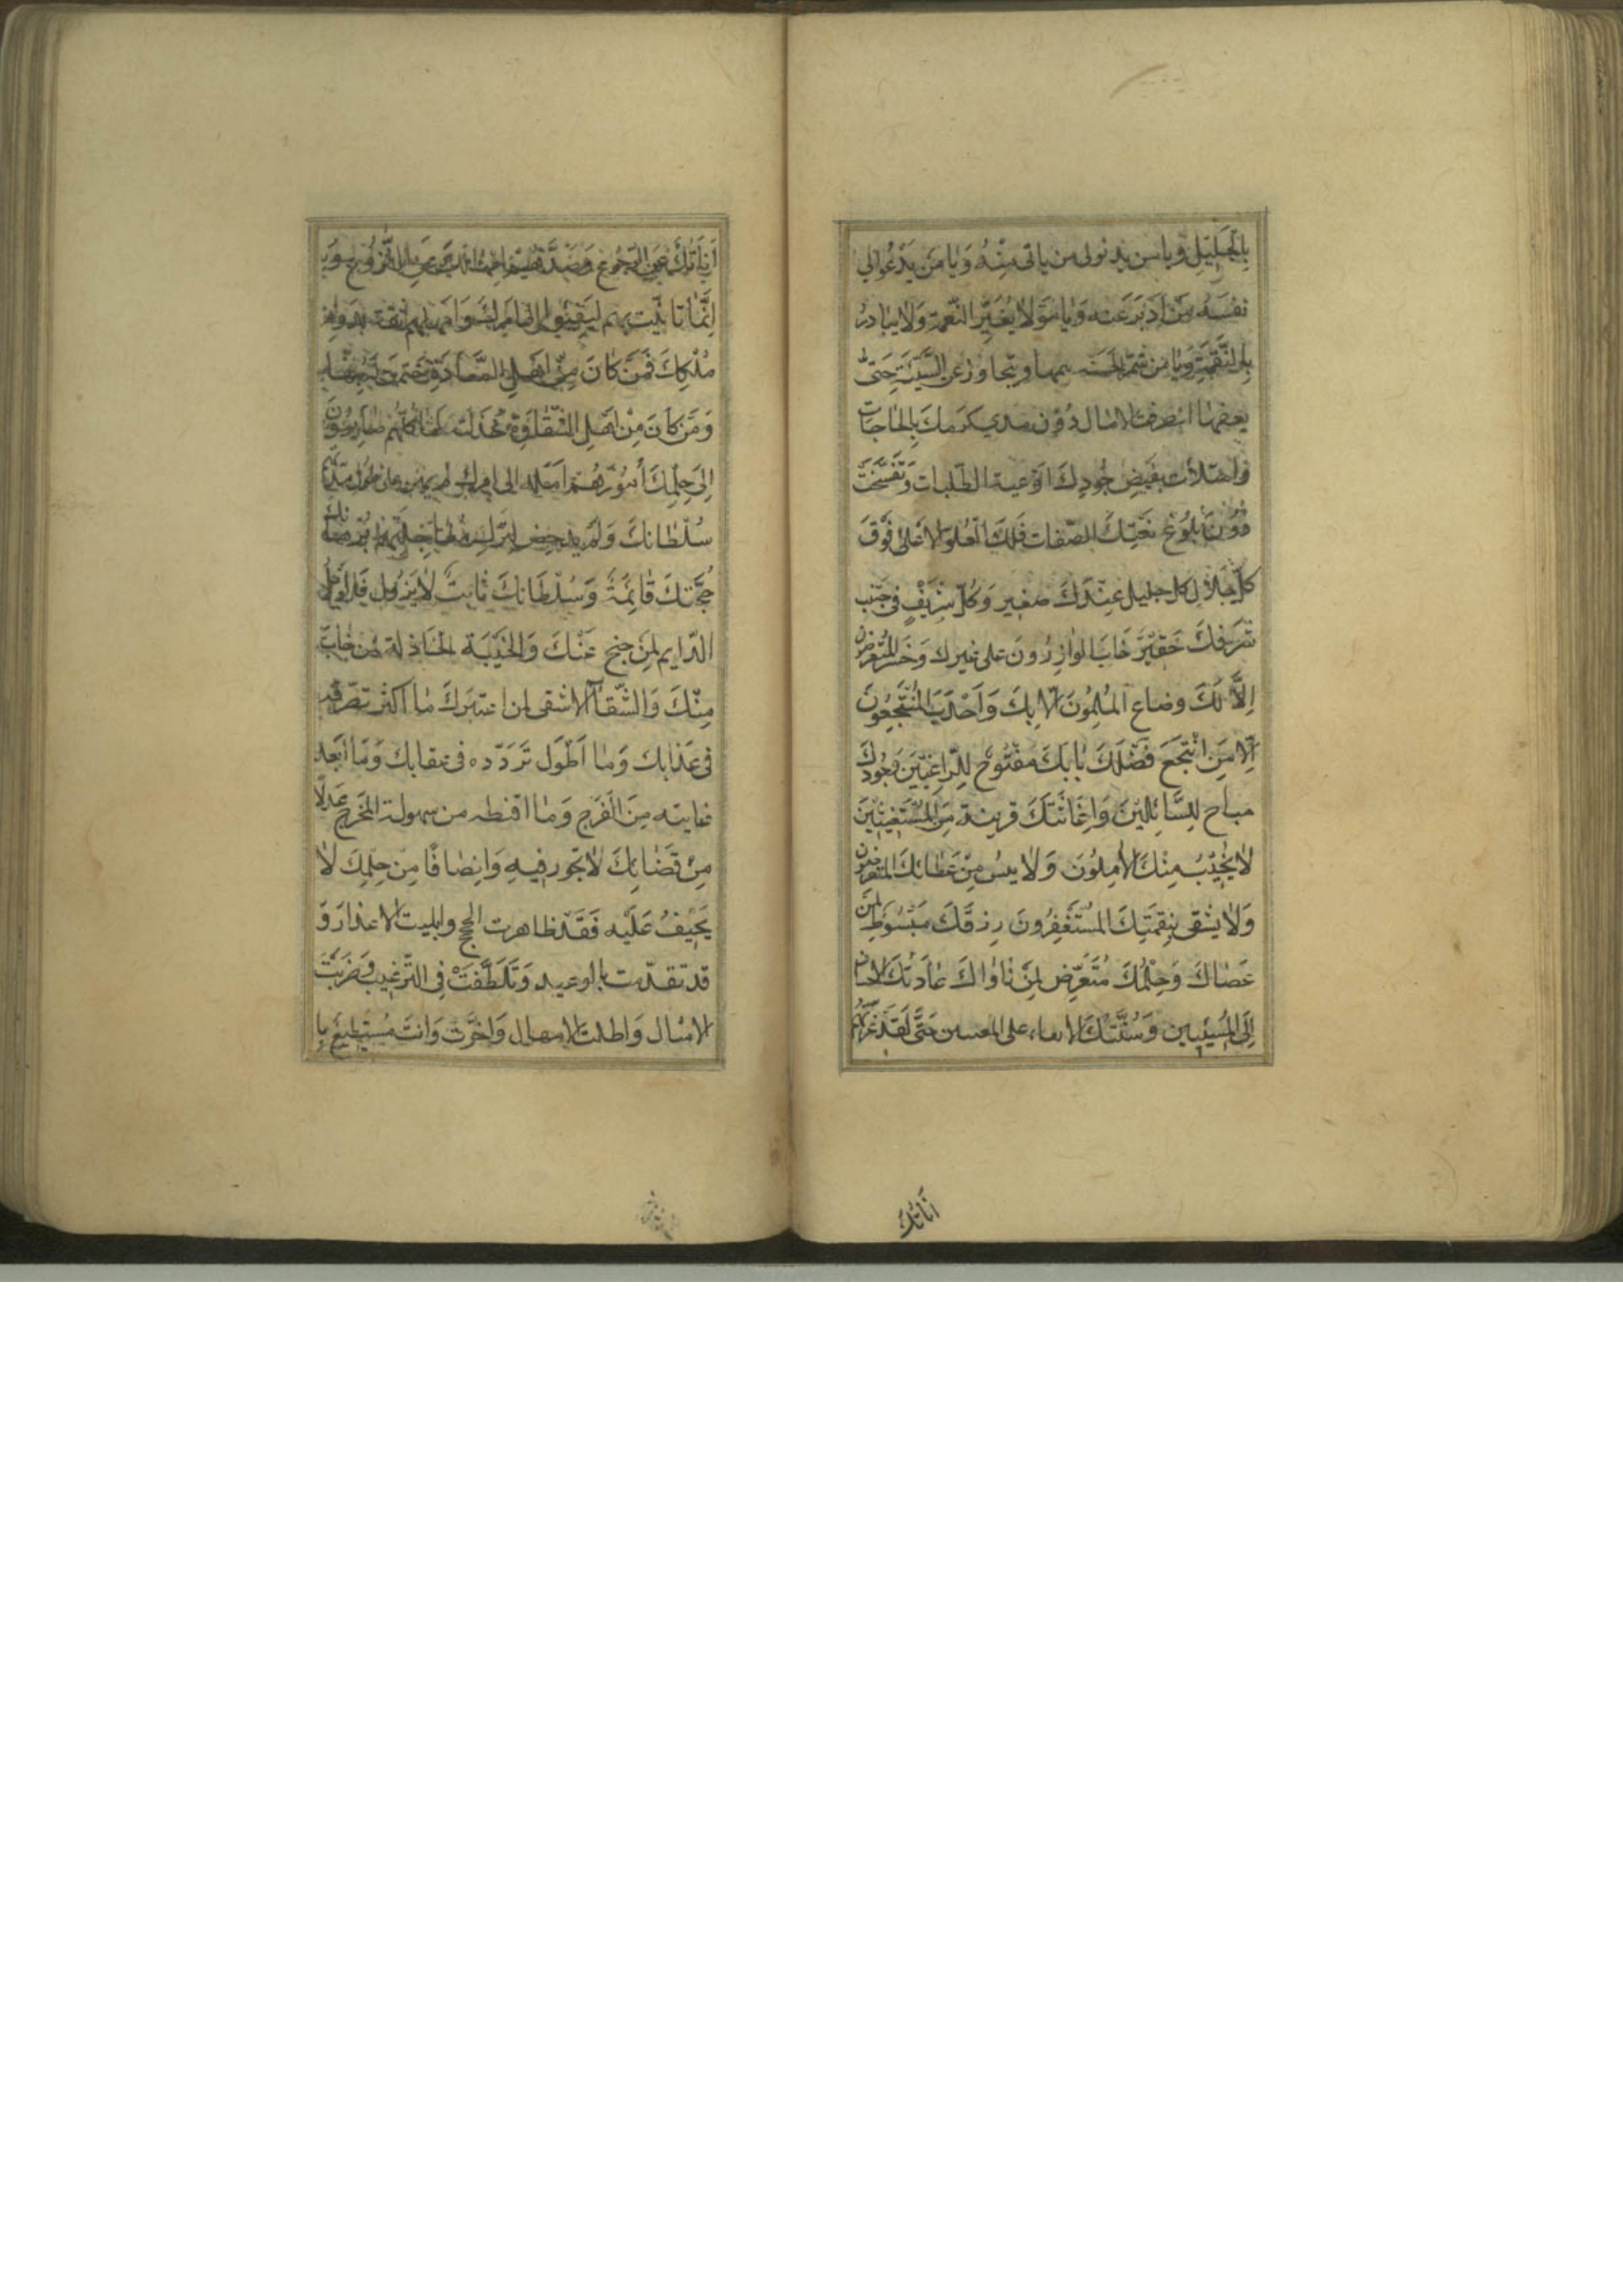 بِالْجَلِيْلِ وَيا من يدنو الى من يأتى مِنْهُ وَيا مَن يَدْعُو الى
نفسه مَنْ اَدْبَرَ عَنه وَيا مَنْ لا يُغَيِّرُ النّعمة وَلا يبادرُ
بِالنَّقِمَةِ وَيا من يثمر الحَسَنه ينميها ويتجاوز عن السَّيِّئَة حَتّى
يعفيها انصرفت الامال دُوْن مدى كَرَمِكَ بِالحاجات
وامتلأت بفَيض جُوْدِكَ اَوْعية الطّلبات وَتَفَسَّخَت
دُوْنَ بُلُوْغ نَعْتِكَ الصّفات فَلَكَ الْعُلُوّ الاَعْلى فَوْقَ
كلّ عال والجلال كل جليل عِنْدَكَ صغير وَكُلّ شَرِيْفٍ فى جَنْب
شَرَفِكَ حَقِيْر خَابَ الوافِدُونَ على غيرك وَخَسِرَ المُتَعَرِّضون
اِلاَّ لَكَ وضاع المُلِمُّوْنَ اِلاّ بِكَ وَاَجْدَبَ المُنْتَجِعُوْنَ
اِلّا مَنِ انْتَجَعَ فَضْلَكَ بابكَ مَفْتُوْحٌ لِلرّاغِبِيْنَ وَجُوْدكَ
مباح لِلسَّائِلِيْنَ وَاِغَاثَتكَ قريبة مِنَ المُسْتَغِيْثِيْنَ
لا يَخِيْبُ مِنْكَ الآمِلُوْنَ وَلا يئس مِنْ عَطائكَ المتعرّضون
وَلا يَشْقى بِنِقْمَتِكَ المُسْتَغْفِرُونَ رِزقكَ مَبْسُوْط لِمَن
عَصَاكَ وَحِلْمُكَ مُتَعَرِّض لِمَن ناواكَ عَادَتكَ الاحسان
اِلَى المُسِيْئِيْن وَسُنَّتكَ الابقاء على المعتدين حَتّى لَقَد غَرَّتهُم
اَنَاتُكَ
اَنَاتُكَ عَنِ الرّجُوع وَصَدَّهُمْ اِمْهَالُكَ عَنِ النُّزُوْعِ وَ
اِنَّمَا تَأنَّيْت بِهِم لِيَفِيْئُوا اِلى اَمْرِكَ وَاَمْهَلْتَهُم ثِقَة بِدَوَام
مُلْكِكَ فَمَنْ كَانَ مِنْ اَهْلِ السَّعَادَةِ خَتَمْتَ لَهُ بِهَا
وَمَن كَانَ مِنْ اَهْلِ الشَّقَاوَةِ خَذَلْتَهُ لَهَا كُلّهُم صَائِرُوْنَ
اِلى حِكْمِكَ اُمُوْرهُم آئلة الى امرك لم يهن على طول مدّتهم
سُلْطانكَ وَلَم يدحض لِتَرْك مُعَاجَلَتِهِم بُرْهَانك
حُجَّتكَ قَائِمَةٌ وَسُلْطَانكَ ثَابِتٌ لا يَزُول فَالوَيْل
الدّايم لِمَن جنح عَنْكَ وَالخَيْبَة الخاذلة لمن خابَ
مِنْكَ وَالشَّقَآءُ الاشقى لمن اغترّبكَ ما اَكثر تصرّفه
فى عَذابك وَما اَطْوَل تَرَدّده فى عقابك وَمَا اَبْعَد
غايته مِنَ الْفَرَج وَما اَقنطه من سهولة المَخْرج عَدلاً
مِنْ قَضَائِكَ لا تجُور فيهِ وَاِنصَافًا مِنْ حِلْمِكَ لا
تَحِيْفُ عَلَيْهِ فَقَدْ ظاهرت الحجج وابليت الاعذار وَ
قد تقدّمت بِالوعيد وَتَلَطَّفْتَ فى التّرغيب وَضَرَبْتَ
الامثال وَاطلت الامهال وَاخّرت وَانت مُسْتَطِيْع بِا